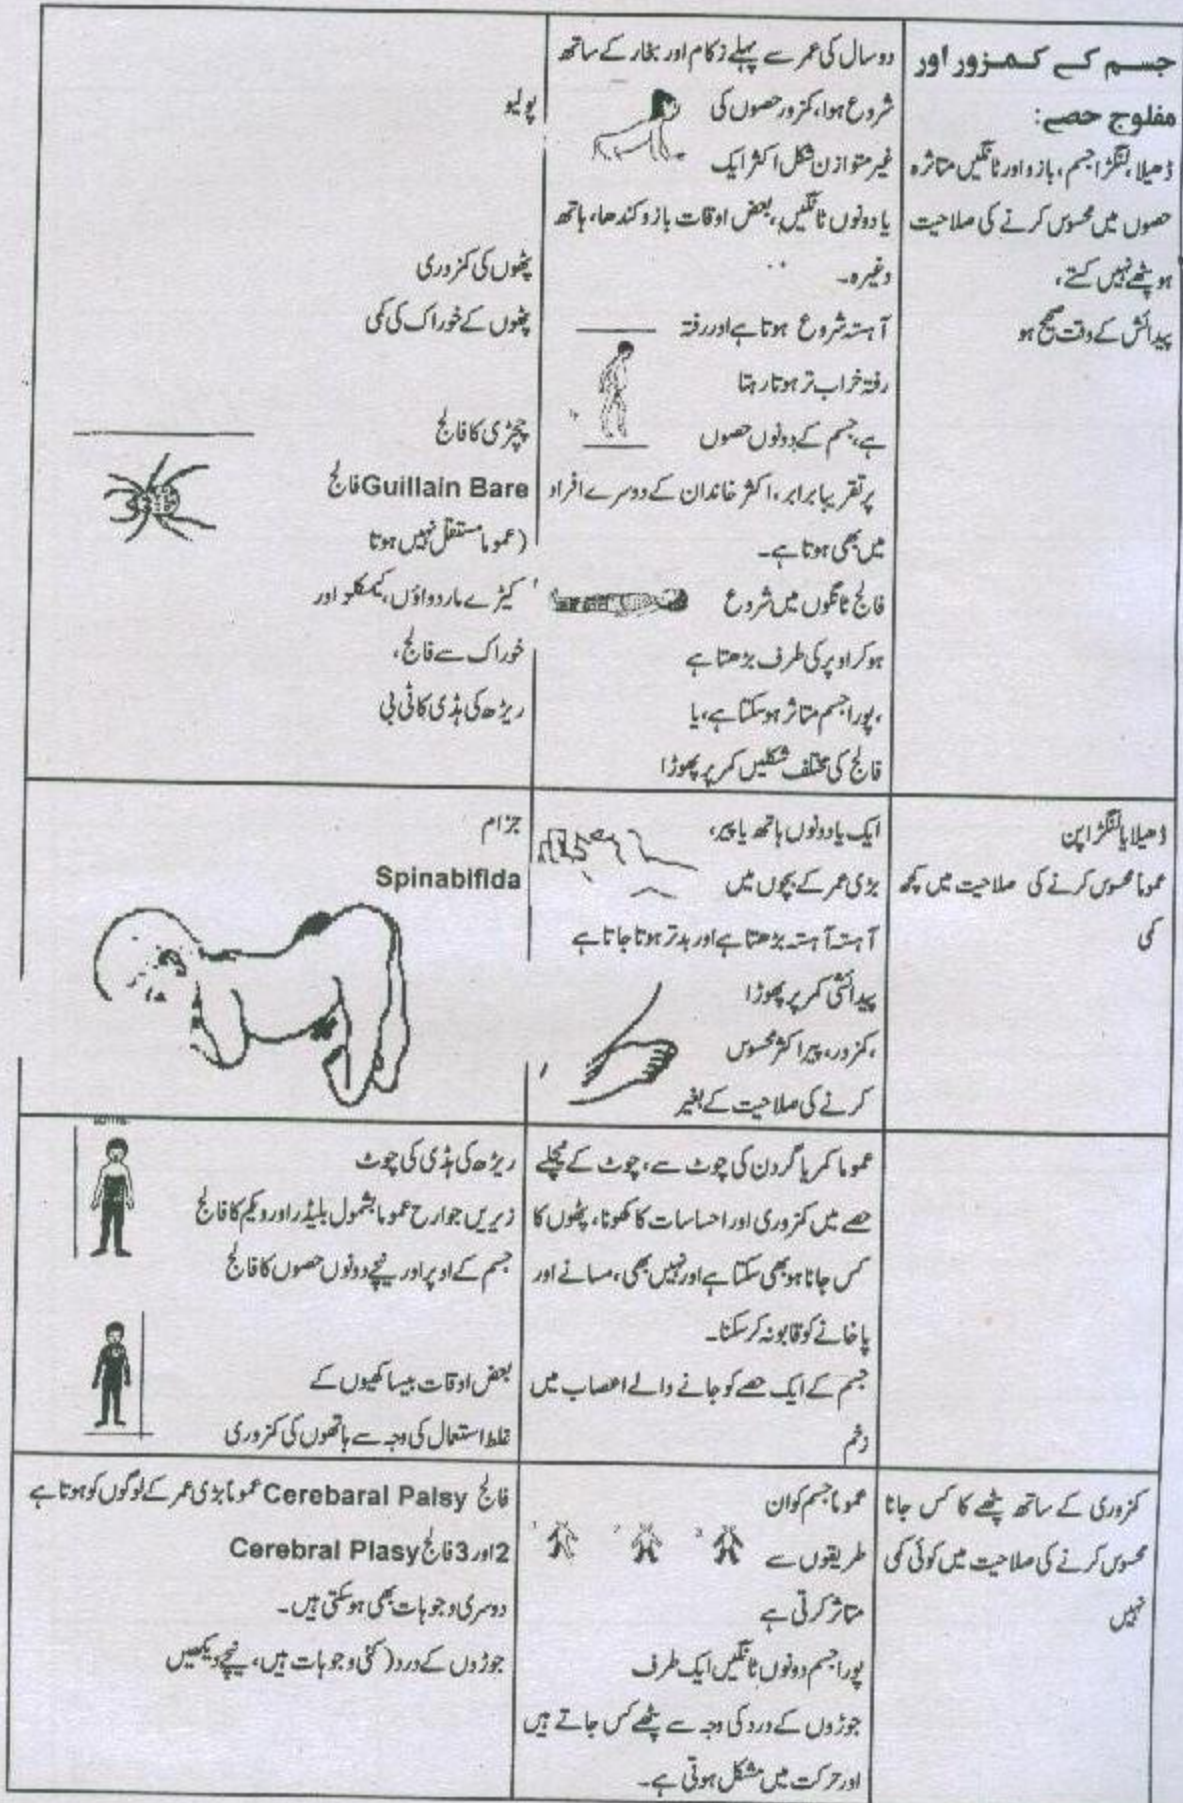 جسم کے کمزور اور
مفلوج حصے:
ڈھیلا، لنگڑا جسم، بازو اور ٹانگیں متاثرہ
حصوں میں محسوس کرنے کی صلاحیت
ہو پٹھے نہیں کستے،
پیدائش کے وقت صحیح ہو
دو سال کی عمر سے پہلے زکام اور بخار کے ساتھ
شروع ہوا، کمزور حصوں کی
غیر متوازن شکل اکثر ایک
یا دونوں ٹانگیں، بعض اوقات بازو کندھا، ہاتھ
وغیرہ۔
آہستہ شروع ہوتا ہے اور رفتہ
رفتہ خراب تر ہوتا رہتا
ہے، جسم کے دونوں حصوں
پر تقریبا برابر، اکثر خاندان کے دوسرے افراد
میں بھی ہوتا ہے۔
فالج ٹانگوں میں شروع
ہو کر اوپر کی طرف بڑھتا ہے
،پورا جسم متاثر ہوسکتا ہے، یا
فالج کی مختلف شکلیں کمر پر پھوڑا
پولیو
پٹھوں کی کمزوری
پٹھوں کے خوراک کی کمی
چچڑی کا فالج
Guillain Bare فالج
(عموما مستقل نہیں ہوتا
کیڑے مار دواؤں، کیمیکلز اور
خوراک سے فالج،
ریڑھ کی ہڈی کا ٹی بی
ڈھیلا یا لنگڑا پن
عموما محسوس کرنے کی صلاحیت میں کچھ
کمی
ایک یا دونوں ہاتھ یا پیر،
بڑی عمر کے بچوں میں
آہستہ آہستہ بڑھتا ہے اور بدتر ہوتا جاتا ہے
پیدائشی کمر پر پھوڑا
،کمزور، پیر اکثر محسوس
کرنے کی صلاحیت کے بغیر
جزام
Spinabifida
عموما کمر یا گردن کی چوٹ سے، چوٹ کے نچلے
حصے میں کمزوری اور احساسات کا کھونا، پٹھوں کا
کس جانا ہو بھی سکتا ہے اور نہیں بھی، مسانے اور
پاخانے کو قابو نہ کرسکنا۔
جسم کے ایک حصے کو جانے والے اعصاب میں
زخم
ریڑھ کی ہڈی کی چوٹ
زیریں جوارح عموما بشمول بلیڈر اور ویکم کا فالج
جسم کے اوپر اور نیچے دونوں حصوں کا فالج
بعض اوقات بیساکھیوں کے
غلط استعمال کی وجہ سے ہاتھوں کی کمزوری
کمزوری کے ساتھ پٹھے کا کس جانا
محسوس کرنے کی صلاحیت میں کوئی کمی
نہیں
عموما جسم کو ان
طریقوں سے
متاثر کرتی ہے
پورا جسم دونوں ٹانگیں ایک طرف
جوڑوں کے درد کی وجہ سے پٹھے کس جاتے ہیں
اور حرکت میں مشکل ہوتی ہے۔
فالج Cerebaral Palsy عموما بڑی عمر کے لوگوں کو ہوتا ہے
2 اور 3 فالج Cerebral Plasy
دوسری وجوہات بھی ہوسکتی ہیں۔
جوڑوں کے درد (کئی وجوہات ہیں، نیچے دیکھیں